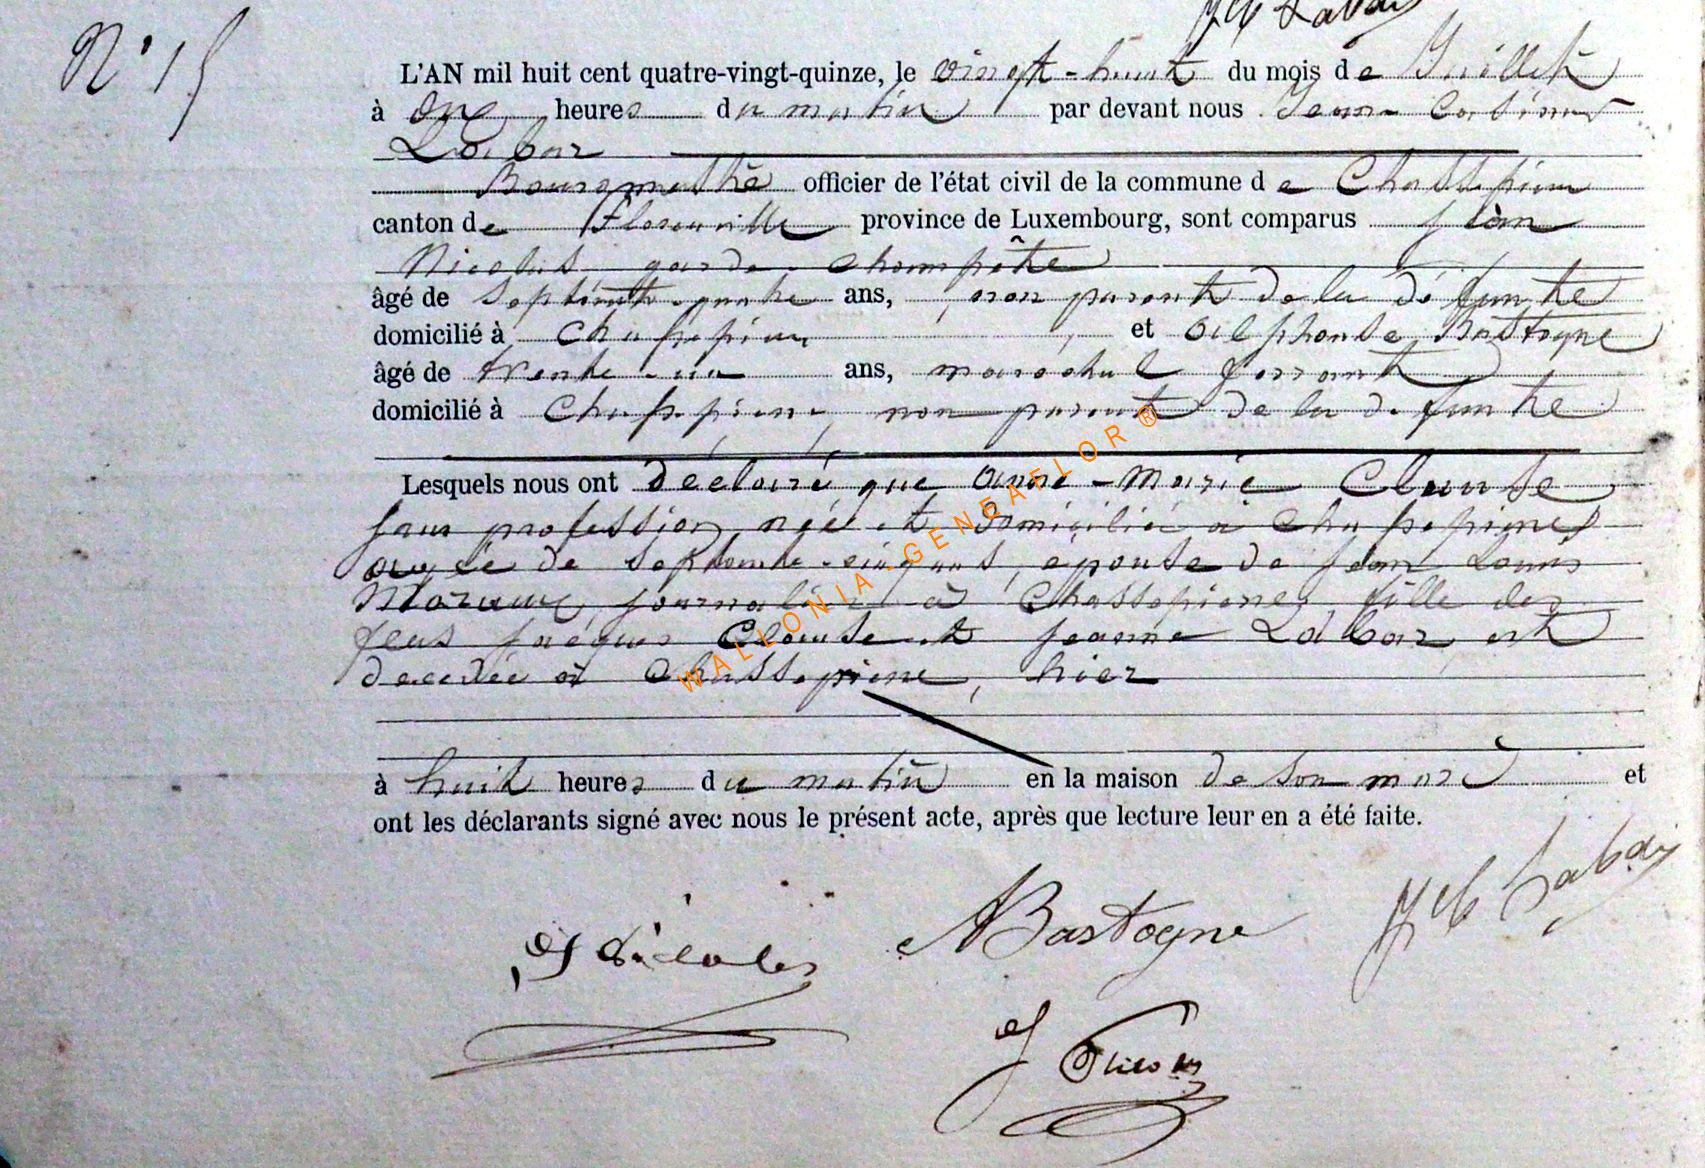 J C Labar
N° 15
L'AN mil huit cent quatre-vingt-quinze, le vingt-huit du mois de Juillet
à onze heures du matin par devant nous Jean Casimir
Labar
Bourgmestre officier de l'état civil de la commune de Chassepierre
canton de Florenville province de Luxembourg, sont comparus Jean
Nicolas garde champêtre
âgé de septante-quatre ans, non parent de la défunte
domicilié à Chassepierre et Alphonse Bastogne
âgé de trente-un ans, maréchal ferrant
domicilié à Chassepierre, non parent de la défunte
Lesquels nous ont déclaré que Anne-Marie Clause
sans profession née et domiciliée à Chassepierre
agée de septante-cinq ans, épouse de Jean Louis
journalier à Chassepierre, fille des
feus Jacques Clause et Jeanne Labar, est
decedée à Chassepierre, hier
à huit heures du matin en la maison de son mari et
ont les déclarants signé avec nous le présent acte, après que lecture leur en a été faite.
J Nicolas ABastogne J C Labar
J Nicolas
WALLONIA-GENEAFLOR®